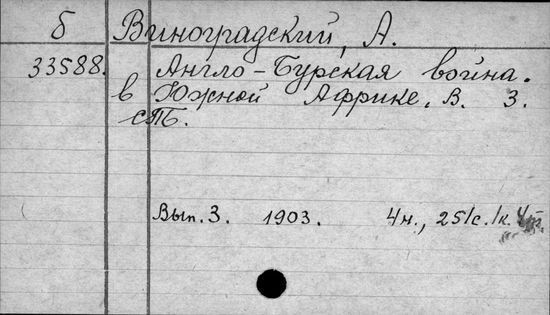 б Виноградский, А.
33588. Англо-Бурская война.
в Южной Африке. В. 3.
СПБ.
Вып. 3. 1903. 4н., 251с. 1к.